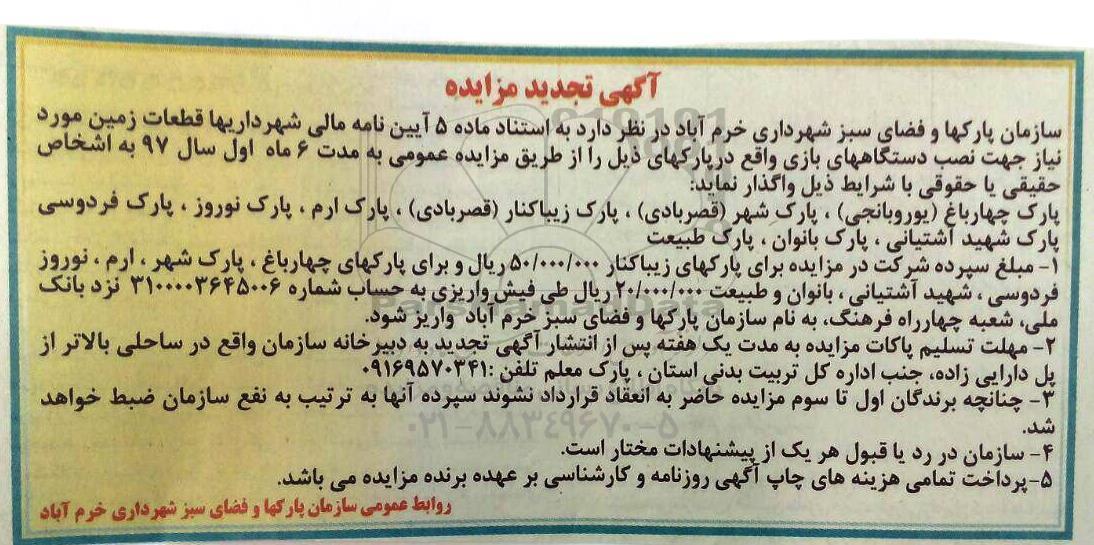 آگهی تجدید مزایده
سازمان پارکها و فضای سبز شهرداری خرم آباد در نظر دارد به استناد ماده ۵ آیین نامه مالی شهرداریها قطعات زمین مورد
نیاز جهت نصب دستگاههای بازی واقع درپارکهای ذیل را از طریق مزایده عمومی به مدت ۶ ماه اول سال ۹۷ به اشخاص
حقیقی یا حقوقی با شرایط ذیل واگذار نماید:
پارک چهارباغ (یوروبانجی) ، پارک شهر (قصربادی) ، پارک زیباکنار (قصربادی) ، پارک ارم ، پارک نوروز ، پارک فردوسی
پارک شهید آشتیانی ، پارک بانوان ، پارک طبیعت
۱- مبلغ سپرده شرکت در مزایده برای پارکهای زیباکنار ۵۰/۰۰۰/۰۰۰ ریال و برای پارکهای چهارباغ ، پارک شهر ، ارم ، نوروز
فردوسی ، شهید آشتیانی ، بانوان و طبیعت ۲۰/۰۰۰/۰۰۰ ریال طی فیش واریزی به حساب شماره ۳۱۰۰۰۰۳۶۴۵۰۰۶ نزد بانک
ملی، شعبه چهارراه فرهنگ، به نام سازمان پارکها و فضای سبز خرم آباد واریز شود.
۲- مهلت تسلیم پاکات مزایده به مدت یک هفته پس از انتشار آگهی تجدید به دبیرخانه سازمان واقع در ساحلی بالاتر از
پل دارایی زاده، جنب اداره کل تربیت بدنی استان ، پارک معلم تلفن :۰۹۱۶۹۵۷۰۳۴۱
۳- چنانچه برندگان اول تا سوم مزایده حاضر به انعقاد قرارداد نشوند سپرده آنها به ترتیب به نفع سازمان ضبط خواهد
شد.
۰۲۱-۸۸۳۴۹۶۷۰-۵
۴- سازمان در رد یا قبول هر یک از پیشنهادات مختار است.
۵-پرداخت تمامی هزینه های چاپ آگهی روزنامه و کارشناسی بر عهده برنده مزایده می باشد.
روابط عمومی سازمان پارکها و فضای سبز شهرداری خرم آباد